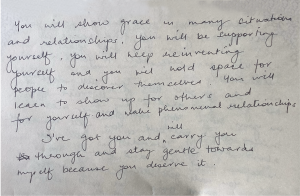 You will show grace in many situations
and relationships. You will be supporting
yourself. You will keep reinventing
yourself and you will hold space for
people to discover themselves. You will
learn to show up for others and
for yourself and make phenomenal relationships
I've got you and will carry you
through and stay gentle towards
myself because you deserve it.